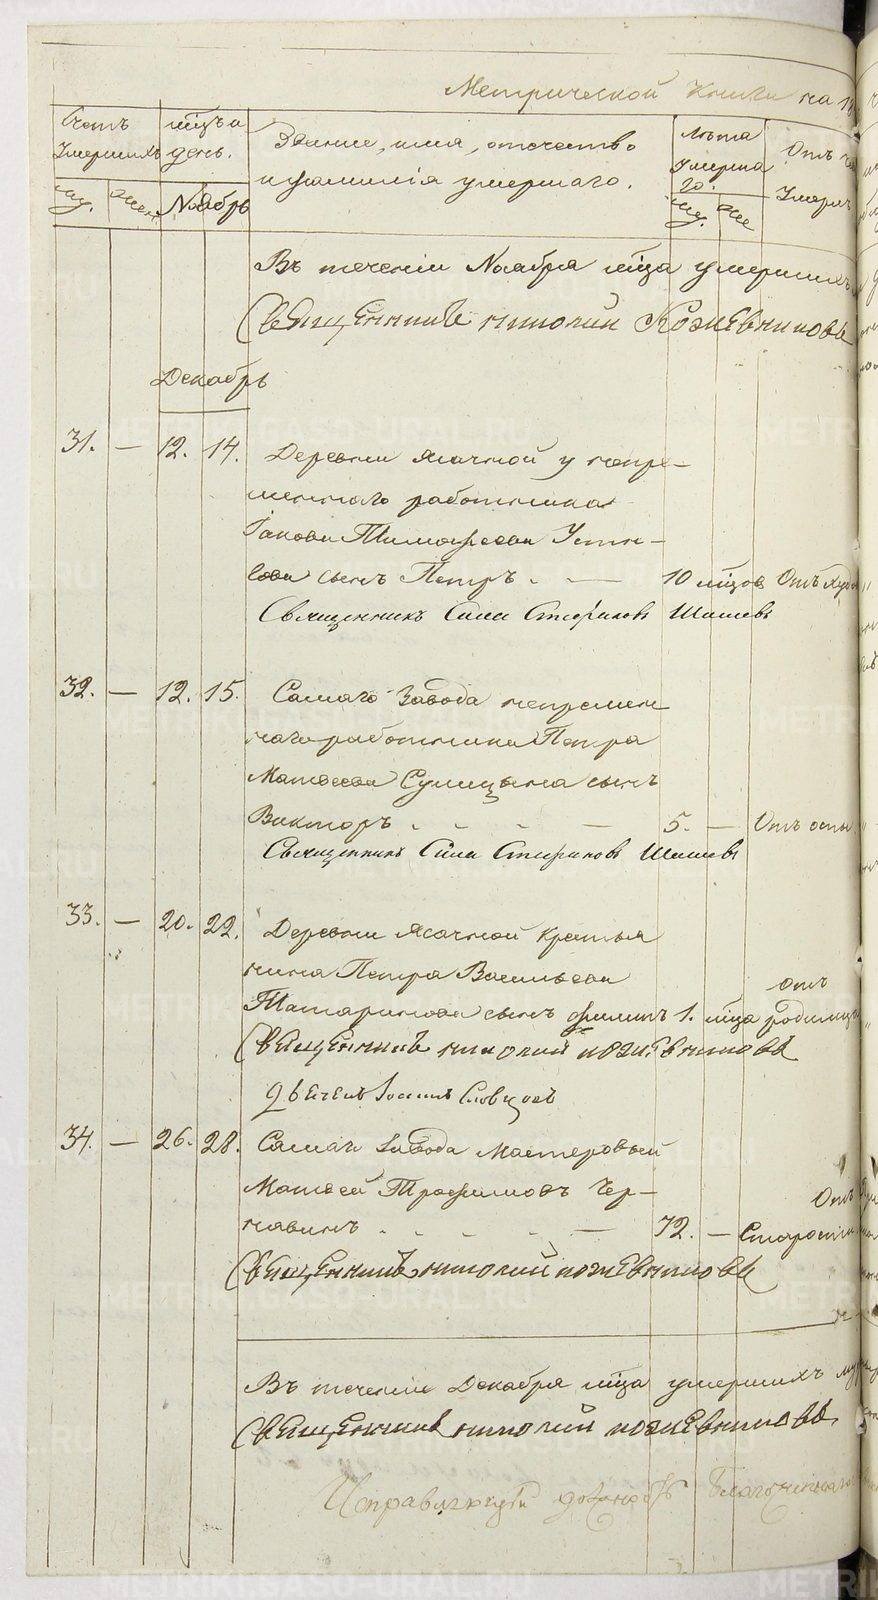 Метрической книги на 18
Счетъ умершихъ
мѣсъ и день.
Званіе, имя, отечество
и фамилія умершаго.
Лѣта умершаго.
Отъ че
умерлъ
му.
жен.
Ноябрь
му.
же
Въ теченіи Ноября мѣца умершихъ
Священникъ Николай Кожевниковъ
Декабрь
31. — 12. 14. Деревни Ясачной у непре-
меннаго работника
Іакова Тимофеева Устю-
гова сынъ Петръ - — 10 мѣцовъ Отъ худо
Священникъ Сила Стефановъ Шишевъ
32. — 12. 15. Самаго Завода непремен
наго работника Петра
Матвеева Сумицына сынъ
Викторъ - - - — 5. — Отъ оспы
Священникъ Сила Стефановъ Шишевъ
33. — 20. 22. Деревни Ясачной крестья
нина Петра Васильева
отъ
Татаринова сынъ Филипъ 1. мѣца родимца
Священникъ Николай Кожевниковъ
Дьячекъ Іоаннъ Словцовъ
34. — 26. 28. Самаго Завода Мастеровый
Матвей Трофимовъ Чер-
Отъ
навинъ - - - - — 72. — Старости
Священникъ Николай Кожевниковъ
Въ теченіи Декабря мѣца умершихъ му
Священникъ Николай Кожевниковъ
Исправляющій должность Благочиннаго
METRIKI.GASO-URAL.RU